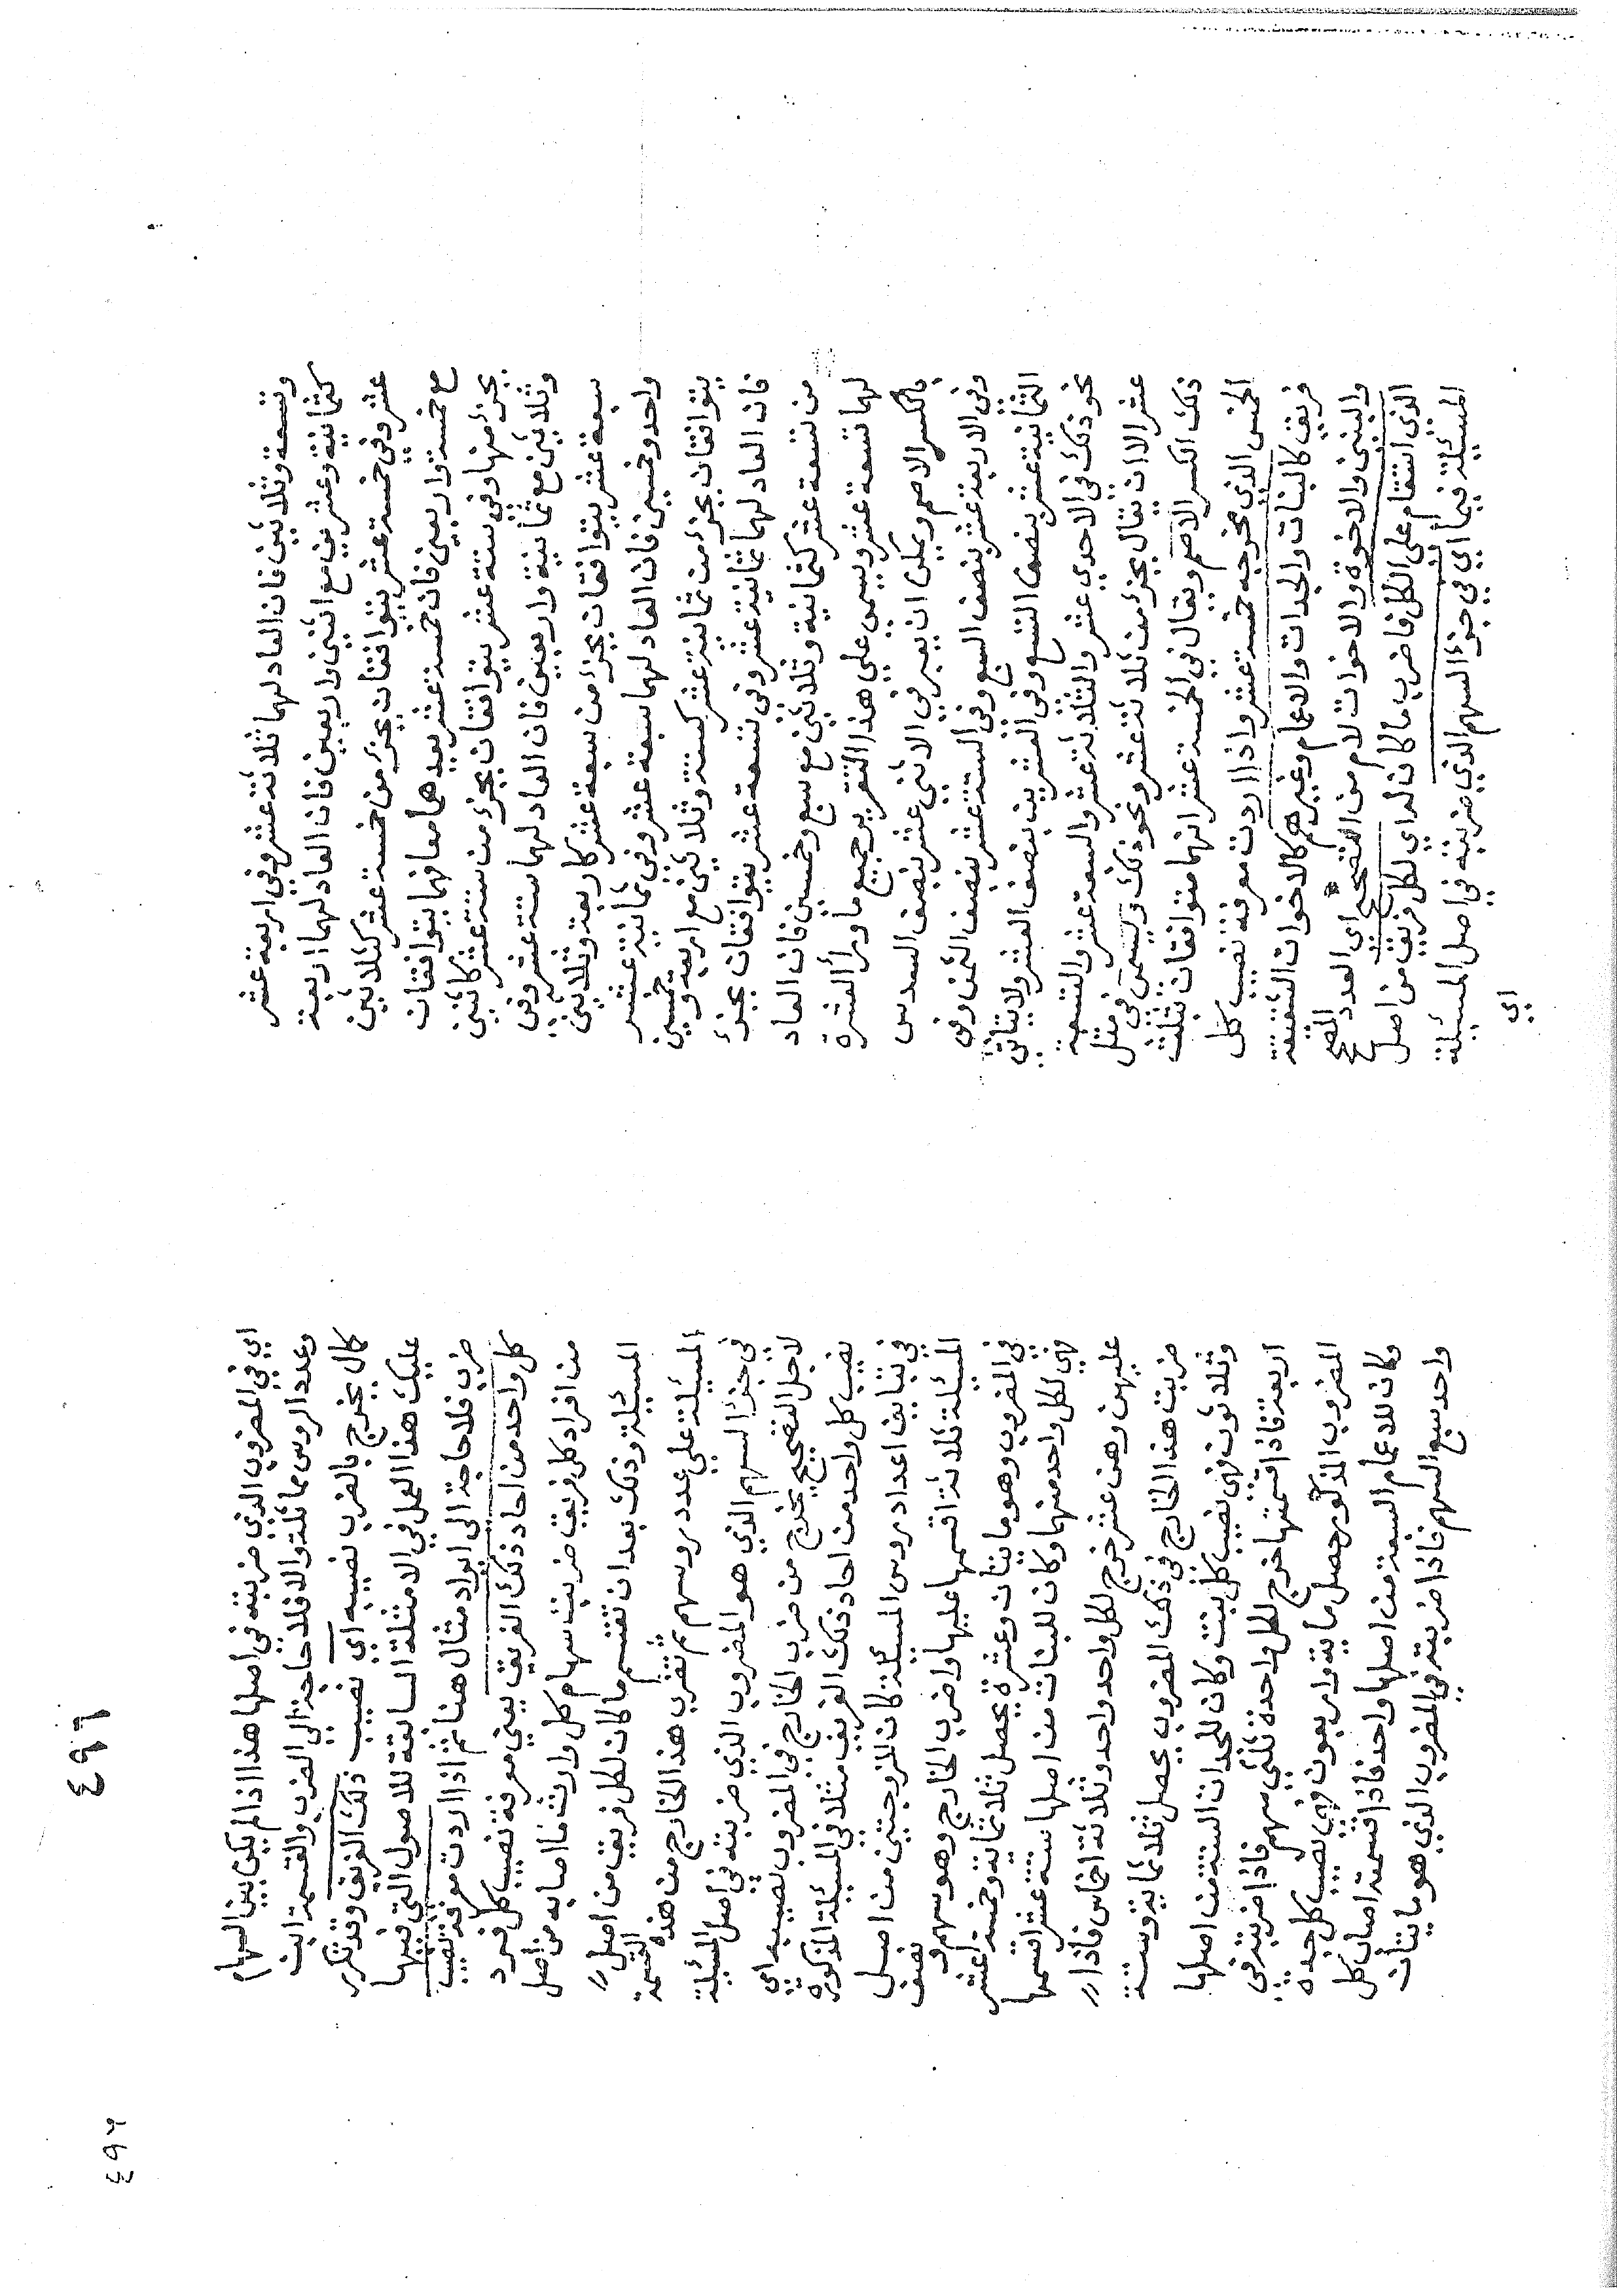 وتسعة وثلاثين فان العاد لهما ثلاثة عشر وفي اربعة عشر
كثمانية وعشرين مع اثنين واربعين فان العاد لهما اربعة
عشر وفي خمسة عشر يتوافقان بجزء من خمسة عشر كثلاثين
مع خمسة واربعين فان خمسة عشر يعدهما معا فهما يتوافقان
بجزء منها وفي ستة عشر يتوافقان بجزء من ستة عشر كاثنين
وثلاثين مع ثمانية واربعين فان العاد لهما ستة عشر وفي
سبعة عشر يتوافقان بجزء من سبعة عشر كاربعة وثلاثين
واحد وخمسين فان العاد لهما سبعة عشر وفي ثمانية عشر
يتوافقان بجزء من ثمانية عشر كستة وثلاثين مع اربعة وخمسين
فان العاد لهما ثمانية عشر وفي تسعة عشر يتوافقان بجزء
من تسعة عشر كثمانية وثلاثين مع سبع وخمسين فان العاد
لهما تسعة عشر ويسمى على هذا التقرير جميع ما وراء العشرة
بالكسر الاصم ويمكن ان يعبر في الاثني عشر بنصف السدس
وفي الاربعة عشر بنصف السبع وفي الستة عشر بنصف الثمن وفي
الثمانية عشر بنصف التسع وفي العشرين بنصف العشر ولا يتاتى
نحو ذلك في الاحدى عشر والثلاثة عشر والسبعة عشر والتسعة
عشر الا ان يقال بجزء من ثلاثة عشر ونحو ذلك ويسمى في مثل
ذلك الكسر الاصم ويقال في الخمسة عشر انهما متوافقان بثلث
الخمس الذي مخرجه خمسة عشر واذا اردت معرفة نصيب كل
فريق كالبنات والجدات والاعمام وغيرهم كالاخوات الشقيقة
والبنين والاخوة والاخوات لام من التصحيح اى العدد المصحح
الذي استقام على الكل فاضرب ما كان له اي لكل فريق من اصل
المسئلة فيما اي في جزء السهم الذي ضربته في اصل المسئلة
اي
٤٩٦
اي في المضروب الذي ضربته في اصلها هذا اذا لم يكن بين السهام
وعدد الروس مماثلة والا فلا حاجة الي الضرب والقسمة اليت
كال يخرج بالضرب نصيبه اي نصيب ذلك الفريق وقد تكرر
عليك هذا العمل في الامثلة السابقة للاصول التي فيها
ضرب فلا حاجة الى ايراد مثال هنا ثم اذا اردت معرفة نصيب
كل واحد من احاد ذلك الفريق يعني معرفة نصيب كل فرد
من افراد كل فريق ضربت سهام كل وارث ما اصابه من اصل
المسئلة وذلك بعد ان تقسم ما كان لكل فريق من اصل
المسئلة على عدد روسهم ثم تضرب هذا الخارج من هذه القسمة
في جزء السهم الذي هو المضروب الذي ضربته في اصل المسئلة
لاجل التصحيح يخرج من ضرب الخارج في المضروب نصيبه اي
نصيب كل واحد من احاد ذلك الفريق مثلا في المسئلة المذكورة
في تباين اعداد روس المسئلة كان للزوجتين من اصل
المسئلة ثلاثة اقسمها عليهما واضرب الخارج وهو سهم ونصف
في المضروب وهو مايتان وعشرة يحصل ثلاثماية وخمسة عشر
فهي لكل واحد منهما وكان للبنات من اصلها ستة عشر اقسمها
عليهن وهن عشر خرج لكل واحد واحد وثلاثة اخماس فاذا
ضربت هذا الخارج في ذلك المضروب يحصل ثلاثماية وستة
وثلاثون فهي نصيب كل بنت وكان للجدات الستة من اصلها
اربعة فاذا قسمتها خرج لكل واحدة ثلثي سهم فاذا ضربته في
المضروب المذكور حصل ماية واربعون فهي نصيب كل جدة
وكان للاعمام السبعة من اصلها واحد فاذا قسمته اصاب كل
واحد سبع السهم فاذا ضربته في المضروب الذي هو مايتان
٤٩٧